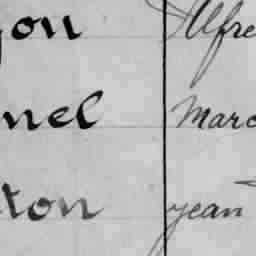 yon Alfre
nel Marc
ton Jean